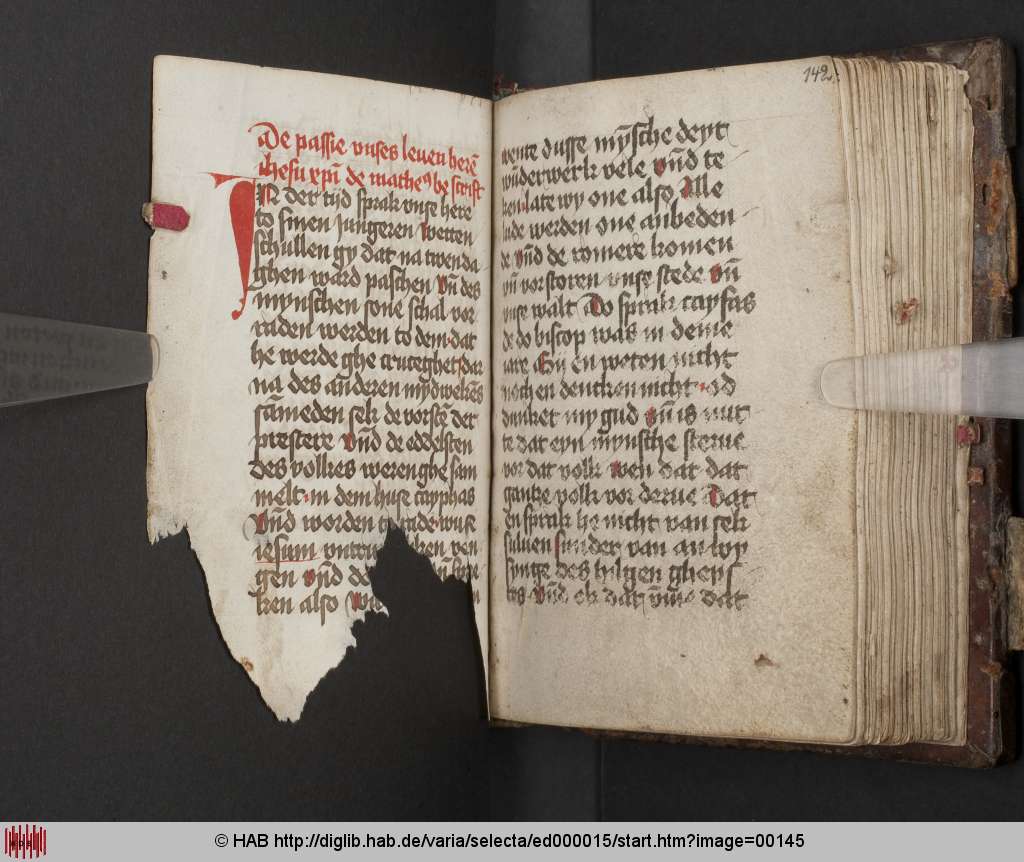 De passie vnses leuen herē
ihesu xpī de matheꝰ be scrift
IN der tijd sprak vnse here
to sinen jungeren wetten
schullen gy dat na twen da
ghen ward paschen vn̄ des
mynschen sone schal vor
raden werden to dem dat
he werde ghe cruceghet dar
na des anderen mydwekēs
sāmeden sek de vorstē der
prestere vn̄d de eddelsten
des volkes weren ghe sam
melt in dem huse cayphas
vn̄d worden to rade wuse
iesum ken ven
gen vn̄d de
ken also
142
wente dusse mȳsche deyt
wūderwerk vele vn̄d te
ken late wy one also Alle
lude werden one anbeden
de vn̄d de romere komen
vn̄ vorstoren vnse stede vn̄
vnse walt Do sprak cayfas
de de biscop was in deme
iare Gy en weten nicht
noch en dencken nicht id
dunket my gud vn̄ is nut
te dat eyn mynsche sterue
vor dat volk wen dat dat
gantze volk vor derue Dat
en sprak he nicht van sek
suluen sunder van an wy
synge des hilgen gheys
tes vn̄d ok dat vm̄e dat
© HAB http://diglib.hab.de/varia/selecta/ed000015/start.htm?image=00145